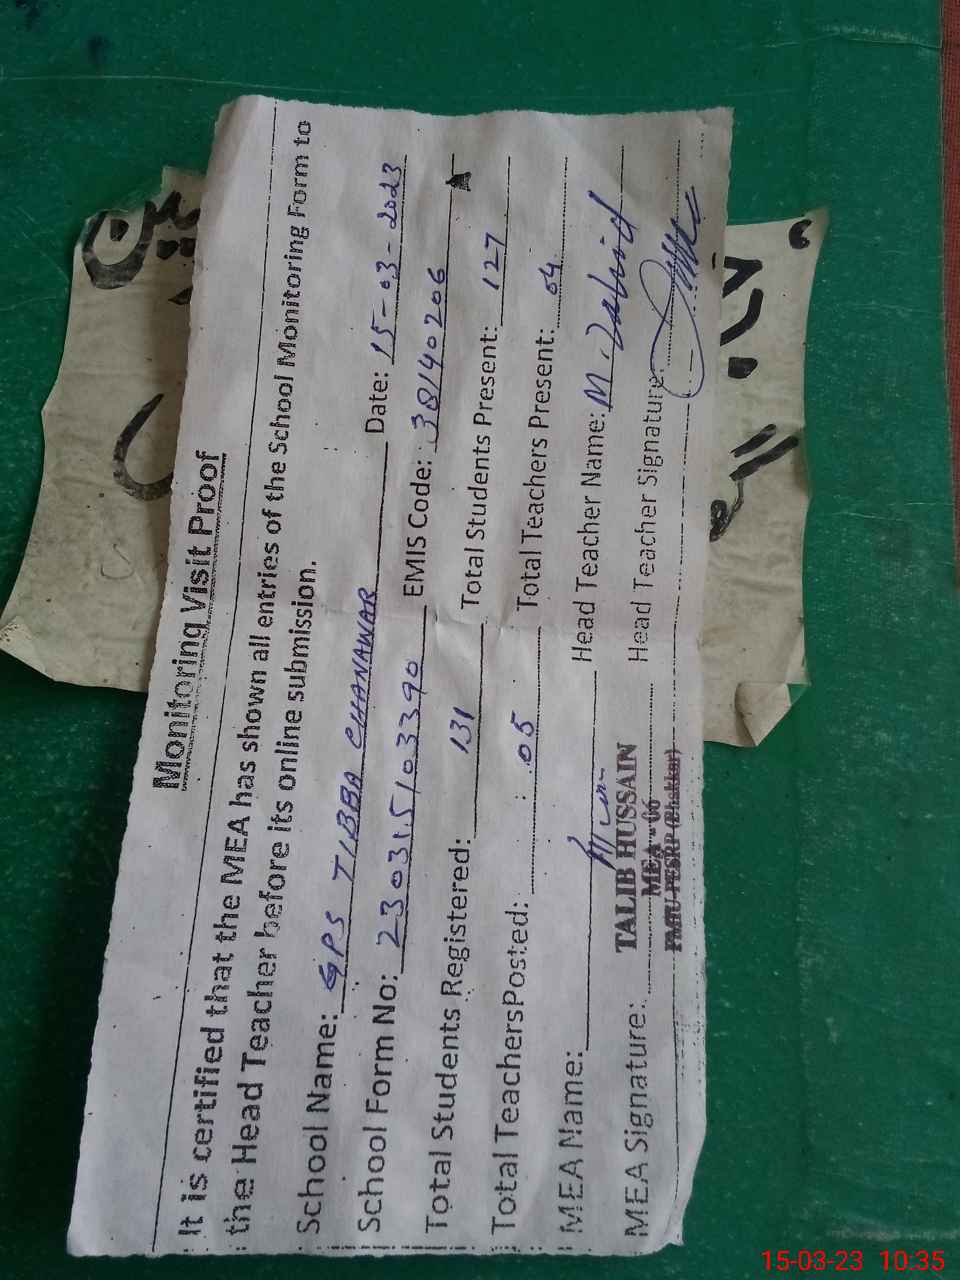 Monitoring Visit Proof
It is certified that the MEA has shown all entries of the School Monitoring Form to
the Head Teacher before its online submission.
School Name: GPS TIBBA CHANAWAR Date: 15-03-2023
School Form No: 230315103390 EMIS Code: 38140206
Total Students Registered: 131 Total Students Present: 127
Total TeachersPosted: 05 Total Teachers Present: 04
MEA Name: Head Teacher Name: M.
MEA Signature: Head Teacher Signature:
TALIB HUSSAIN
MEA-06
PMIU-PESRP (Bhakkar)
15-03-23 10:35